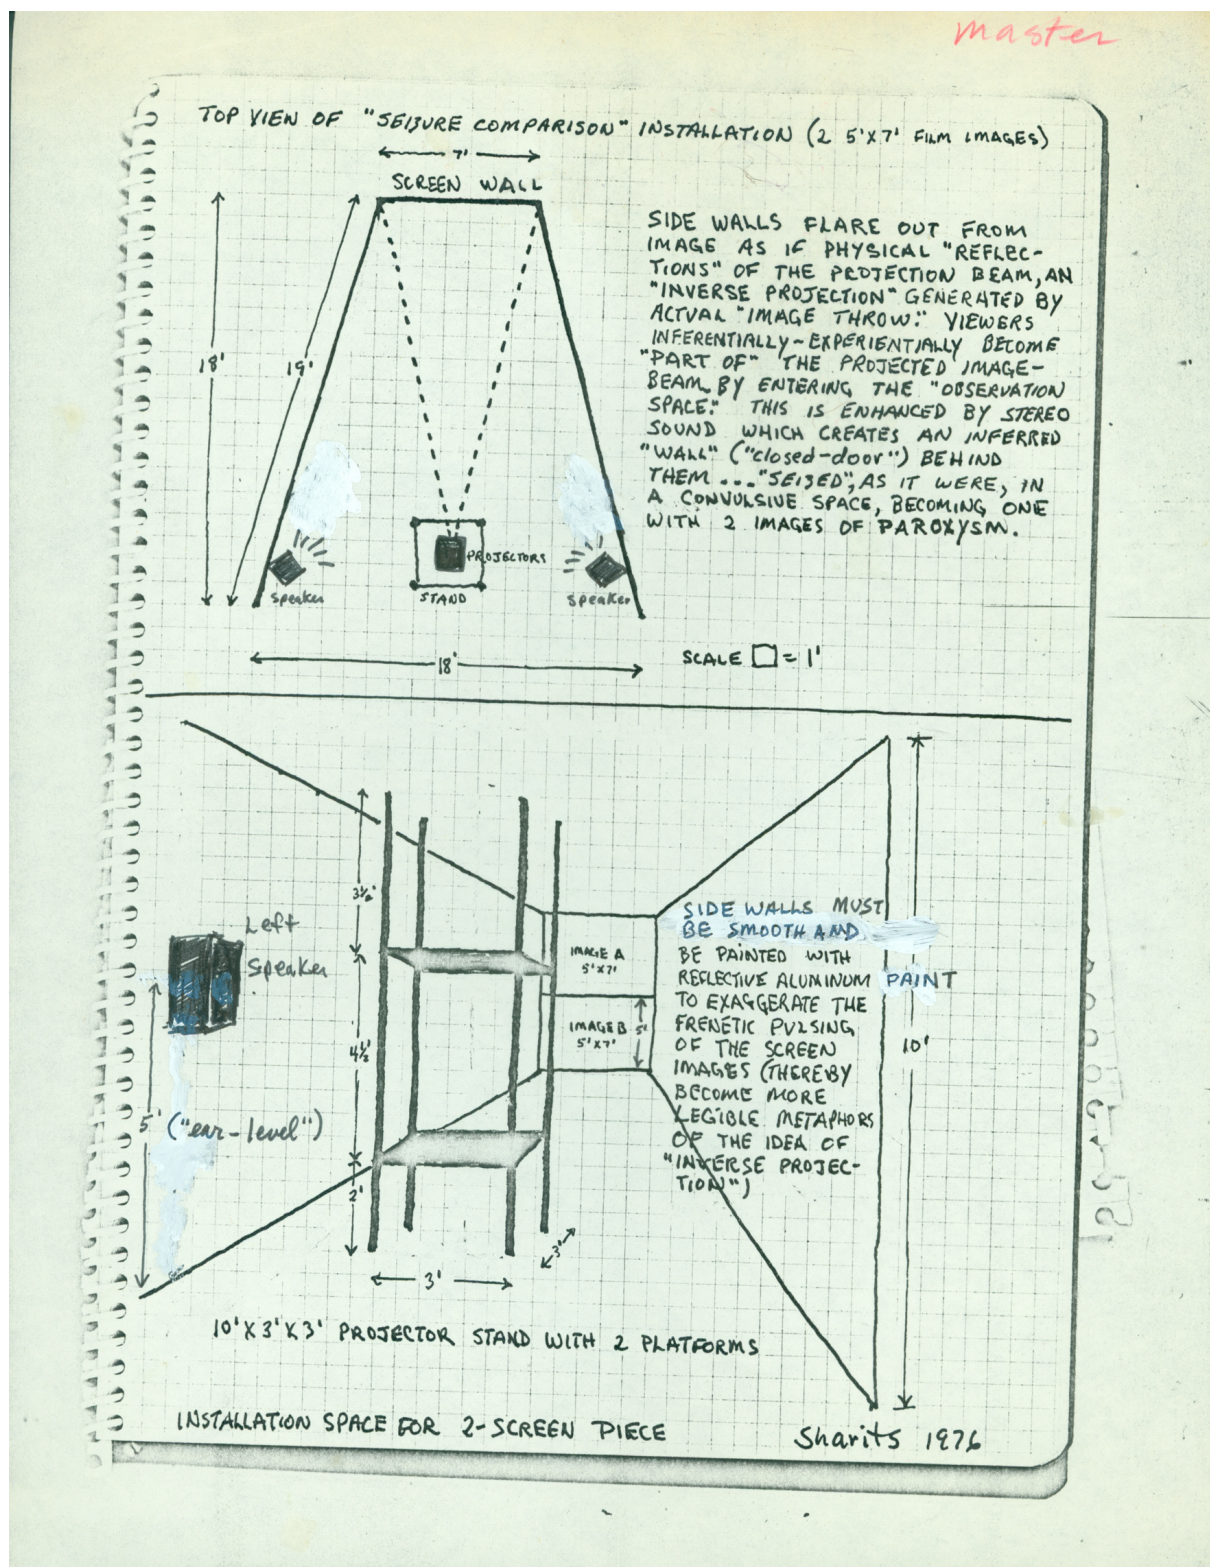 master
TOP VIEW OF "SEIZURE COMPARISON" INSTALLATION (2 5'X7' FILM IMAGES)
7'
SCREEN WALL
18'
19'
PROJECTORS
Speaker
STAND
Speaker
18'
SIDE WALLS FLARE OUT FROM
IMAGE AS IF PHYSICAL "REFLEC-
TIONS" OF THE PROJECTION BEAM, AN
"INVERSE PROJECTION" GENERATED BY
ACTUAL "IMAGE THROW." VIEWERS
INFERENTIALLY-EXPERIENTIALLY BECOME
"PART OF" THE PROJECTED IMAGE-
BEAM BY ENTERING THE "OBSERVATION
SPACE." THIS IS ENHANCED BY STEREO
SOUND WHICH CREATES AN INFERRED
"WALL" ("closed-door") BEHIND
THEM ... "SEIZED", AS IT WERE, IN
A CONVULSIVE SPACE, BECOMING ONE
WITH 2 IMAGES OF PAROXYSM.
SCALE □ = 1'
3½'
Left
Speaker
4½'
5' ("ear-level")
2'
3'
3'
IMAGE A
5'X7'
IMAGE B
5'X7'
5'
SIDE WALLS MUST
BE SMOOTH AND
BE PAINTED WITH
REFLECTIVE ALUMINUM PAINT
TO EXAGGERATE THE
FRENETIC PULSING
OF THE SCREEN
IMAGES (THEREBY
BECOME MORE
LEGIBLE METAPHORS
OF THE IDEA OF
"INVERSE PROJEC-
TION")
10'
10'X3'X3' PROJECTOR STAND WITH 2 PLATFORMS
INSTALLATION SPACE FOR 2-SCREEN PIECE
Sharits 1976